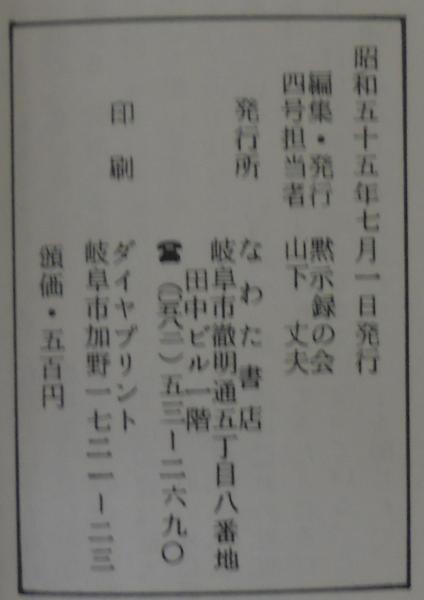 昭和五十五年七月一日発行
編集・発行 黙示録の会
四号担当者 山下 丈夫
発行所 なわた書店
岐阜市徹明通五丁目八番地
田中ビル一階
☎ (〇五八二)五三ー二六九〇
印刷 ダイヤプリント
岐阜市加野一七二一ー二三
頒価・五百円